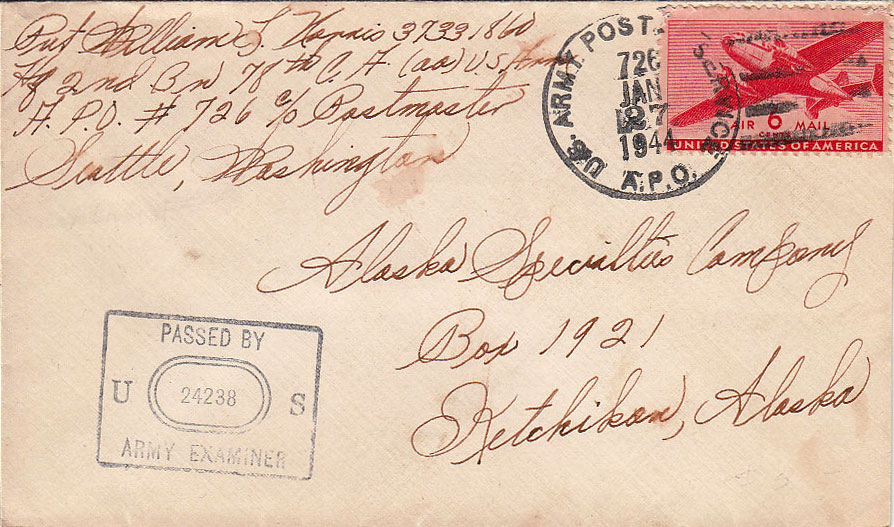 Pvt William L. Harris 37331860
Hq 2nd Bn 78th C.A. (aa) U.S. Army
A.P.O. # 726 c/o Postmaster
Seattle, Washington
U.S. ARMY POSTAL SERVICE
726
JAN
27
1944
A.P.O.
AIR 6 MAIL
CENTS
UNITED STATES OF AMERICA
Alaska Specialties Company
Box 1921
Ketchikan, Alaska
PASSED BY
U 24238 S
ARMY EXAMINER